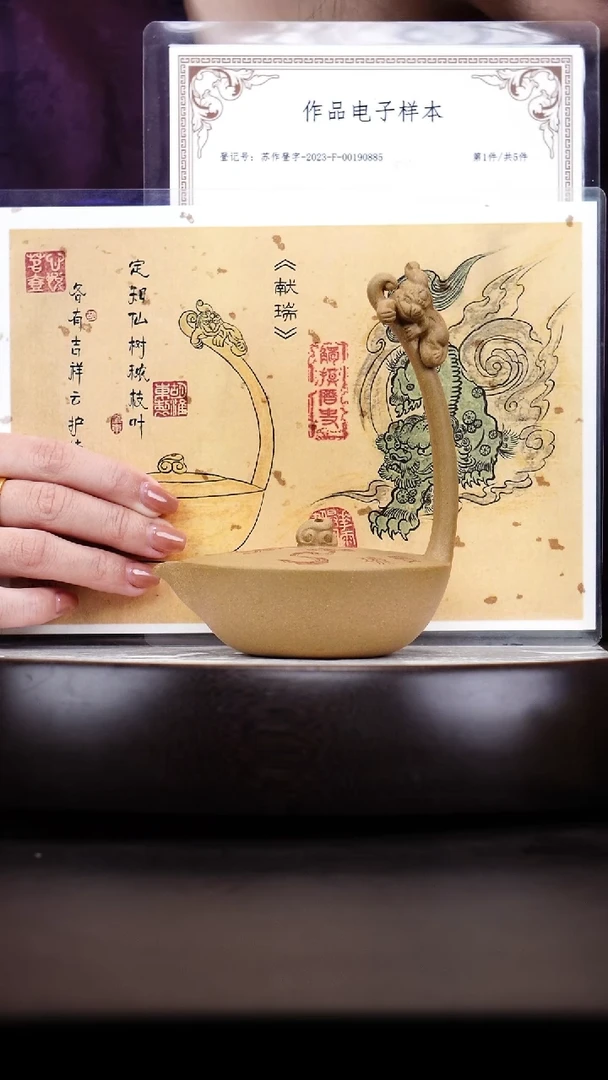 作品电子样本
登记号：苏作登字-2023-F-00190885
第1件/共5件
《献瑞》
定知仙树琼枝叶
各有吉祥云护